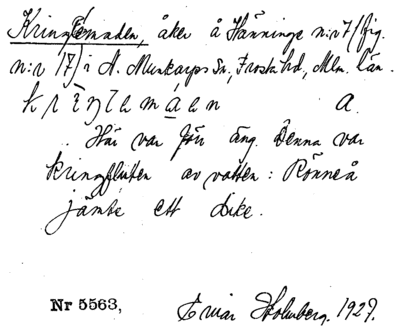 Kringlemaden, åker å Hänninge n:r 7 (fig.
n:r 17) i N. Munkarps sn, Frosta hd, Mlm. län.
a.
Här var förr äng. Denna var
kringfluten av vatten: Rönneå
jämte ett dike.
Nr 5563, Einar Holmberg. 1927.